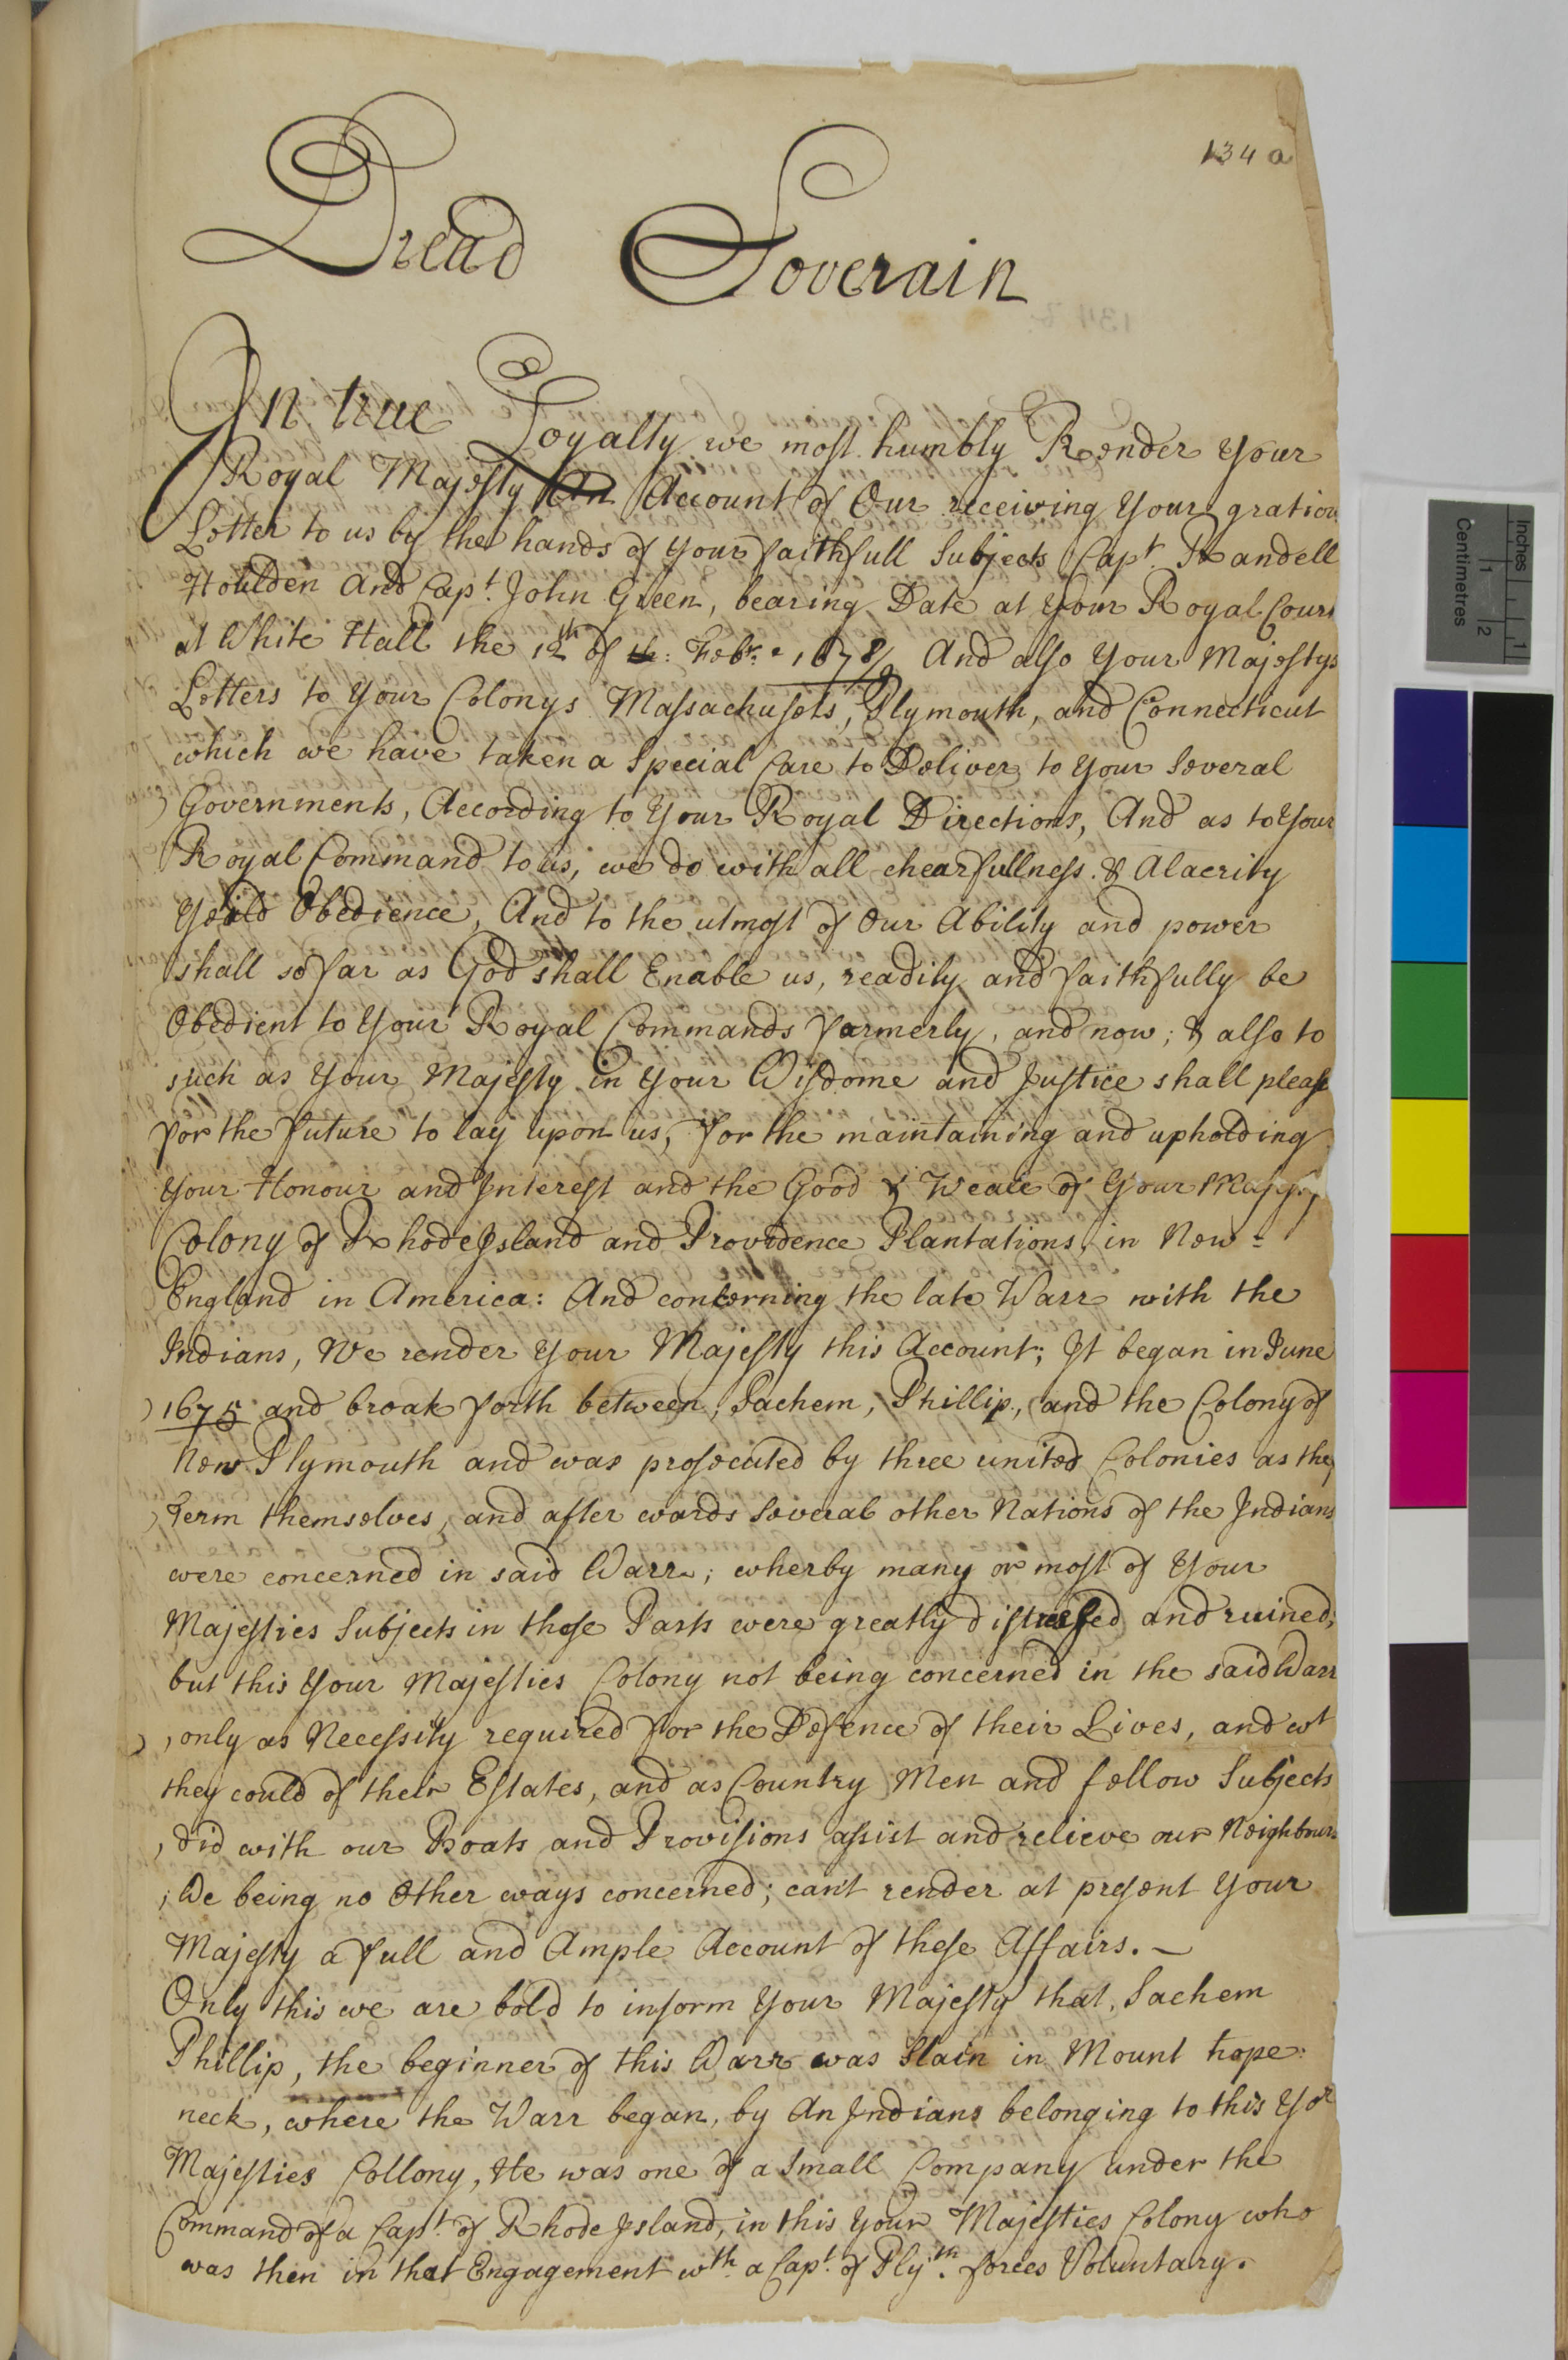 134 a
Dread Soverain
In true Loyalty we most humbly Render Your
Royal Majesty An Account of Our receiving Your gratiou
Letter to us by the hands of Your faithfull Subjects Capt. Randell
Houlden And Capt. John Green, bearing Date at Your Royal Court
at White Hall the 12th of Febr. 1678/9 And also Your Majestys
Letters to Your Colonys Massachusets, Plymouth, and Connecticut
which we have taken a Special Care to Deliver to Your Several
Governments, According to Your Royal Directions, And as to Your
Royal Command to us, we do with all chearfullness & Alacrity
Yeild Obedience, And to the utmost of Our Ability and power
shall so far as God shall Enable us, readily and faithfully be
Obedient to Your Royal Commands formerly, and now; & also to
such as Your Majesty in Your Wisdome and Justice shall please
for the future to lay upon us, for the maintaining and upholding
Your Honour and Interest and the Good & Weale of Your Majesty
Colony of Rhode Island and Providence Plantations, in New-
England in America: And concerning the late Warr with the
Indians, We render Your Majesty this Account; It began in June
1675 and broak forth between, Sachem, Phillip, and the Colony of
New Plymouth and was prosecuted by three united Colonies as they
Term themselves, and after wards Several other Nations of the Indians
were concerned in said Warr; wherby many or most of Your
Majesties Subjects in these Parts were greatly distressed and ruined;
but this Your Majesties Colony not being concerned in the said Warr
, only as Necessity required for the Defence of their Lives, and wt
they could of their Estates, and as Country Men and fellow Subjects
, did with our Boats and Provisions assist and relieve our Neighbours
; We being no Other ways concerned; cant render at present Your
Majesty a full and Ample Account of these Affairs. –
Only this we are bold to inform Your Majesty that, Sachem
Phillip, the beginner of this Warr was Slain in Mount hope:
neck, where the Warr began, by An Indians belonging to this Yor
Majesties Collony, He was one of a Small Company under the
Command of a Capt. of Rhode Island, in this Your Majesties Colony who
was then in that Engagement wth a Capt. of Plyth. forces Voluntary.
Inches
1
Centimetres
1
2